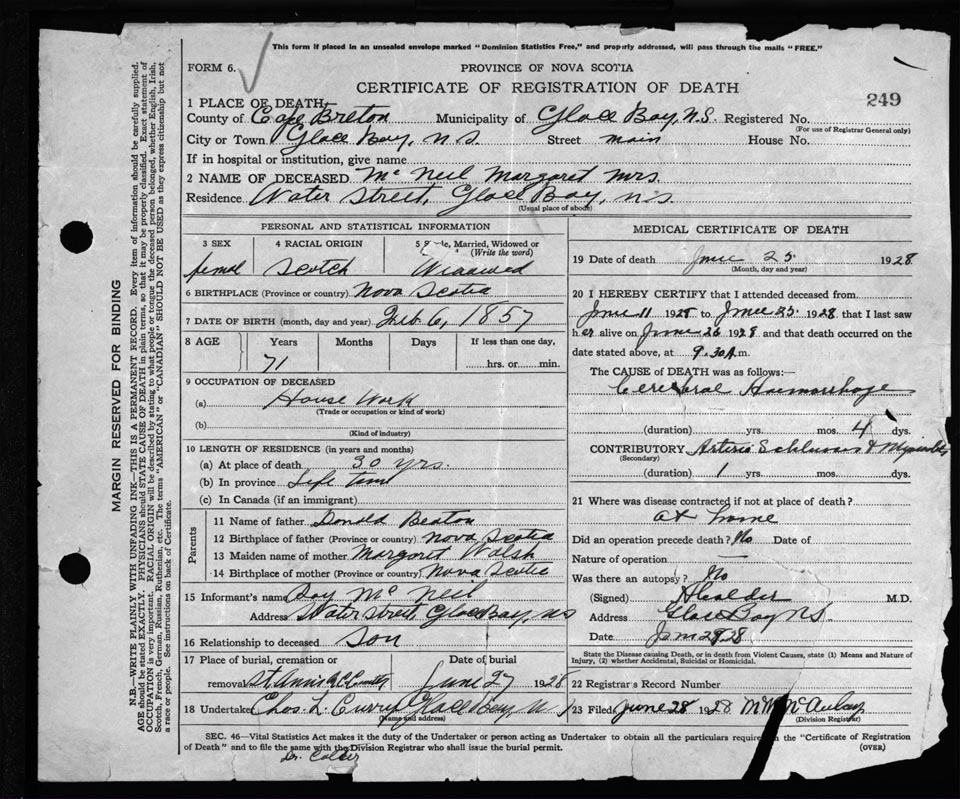 This form if placed in an unsealed envelope marked "Dominion Statistics Free," and properly addressed, will pass through the mails "FREE."
FORM 6.
PROVINCE OF NOVA SCOTIA
CERTIFICATE OF REGISTRATION OF DEATH
249
1 PLACE OF DEATH,
County of Cape Breton Municipality of Glace Bay, N.S. Registered No.
(For use of Registrar General only)
City or Town Glace Bay, N.S. Street main House No.
If in hospital or institution, give name
2 NAME OF DECEASED Mc Neil Margaret Mrs.
Residence Water Street, Glace Bay, N.S.
(Usual place of abode)
PERSONAL AND STATISTICAL INFORMATION
3 SEX 4 RACIAL ORIGIN 5 Married, Widowed or
(Write the word)
femal Scotch Widowed
6 BIRTHPLACE (Province or country) Nova Scotia
7 DATE OF BIRTH (month, day and year) Feb 6, 1857
8 AGE Years Months Days If less than one day,
71 hrs. or min.
9 OCCUPATION OF DECEASED
(a) House Work
(Trade or occupation or kind of work)
(b)
(Kind of industry)
10 LENGTH OF RESIDENCE (in years and months)
(a) At place of death 30 yrs.
(b) In province Life time
(c) In Canada (if an immigrant)
Parents
11 Name of father Donald Beaton
12 Birthplace of father (Province or country) Nova Scotia
13 Maiden name of mother Margaret Walsh
14 Birthplace of mother (Province or country) Nova Scotia
15 Informant's name Mc Neil
Address Water Street, Glace Bay, NS
16 Relationship to deceased Son
17 Place of burial, cremation or Date of burial
removal St Anns June 27 1928
18 Undertaker Chas. L. Curry Glace Bay, N.S.
(Name and address)
MEDICAL CERTIFICATE OF DEATH
19 Date of death June 25 1928
(Month, day and year)
20 I HEREBY CERTIFY that I attended deceased from
June 11 1928 to June 25 1928 that I last saw
h er alive on June 1928 and that death occurred on the
date stated above, at 9.30 A.m.
The CAUSE OF DEATH was as follows:—
Cerebral Haemorrhage
(duration) yrs. mos. 4 dys.
CONTRIBUTORY Arterio Sclerosis &
(Secondary)
(duration) 1 yrs. mos. dys.
21 Where was disease contracted if not at place of death?
at home
Did an operation precede death? No Date of
Nature of operation —
Was there an autopsy? No
(Signed) Calder M.D.
Address Glace Bay N.S.
Date 1928
State the Disease causing Death, or in death from Violent Causes, state (1) Means and Nature of
Injury, (2) whether Accidental, Suicidal or Homicidal.
22 Registrar's Record Number
23 Filed June 28 1928 McAulay
(Division Registrar)
SEC. 46—Vital Statistics Act makes it the duty of the Undertaker or person acting as Undertaker to obtain all the particulars required in the "Certificate of Registration
of Death" and to file the same with the Division Registrar who shall issue the burial permit.
(OVER)
Dr. Calder
MARGIN RESERVED FOR BINDING
N.B.—WRITE PLAINLY WITH UNFADING INK—THIS IS A PERMANENT RECORD. Every item of information should be carefully supplied.
AGE should be stated EXACTLY. PHYSICIANS should STATE CAUSE OF DEATH in plain terms, so that it may be properly classified. Exact statement of
OCCUPATION is very important. RACIAL ORIGIN will be described by stating to what people or tongue the deceased person belonged, whether English, Irish,
Scotch, French, German, Russian, Ruthenian, etc. The terms "AMERICAN" or "CANADIAN" SHOULD NOT BE USED as they express citizenship but not
a race or people. See instructions on back of Certificate.